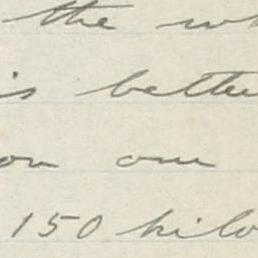 the wh
is better
on our
150 kilo